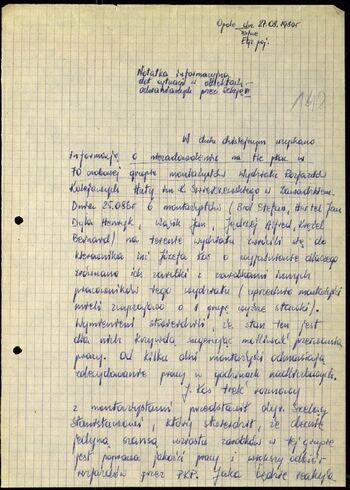 Opole, dn. 27.08.1980r
Tajne
Egz. poj.
Notatka informacyjna
dot. sytuacji w obiektach
ochranianych przez
W dniu dzisiejszym uzyskano
informację o niezadowoleniu na tle płac w
70 osobowej grupie montażystów Wydziału Rozjazdów
Kolejowych Huty im. K. Świerczewskiego w Zawadzkiem.
Dnia 25.08br. 6 montażystów ( Stefan, Jan
Dyla Henryk, Wąsik Jan, Jędrzej Alfred,
Bernard) na terenie wydziału zwrócili się do
kierownika inż. Józefa Kos o wyjaśnienie dlaczego
zrównano ich zarobki z zarobkami innych
pracowników tego wydziału (uprzednio montażyści
mieli zaszeregowanie o 1 grupę wyższe stawki).
Wymienieni stwierdzili, że stan ten jest
dla nich krzywdą, sugerując możliwość przerwania
pracy. Od kilku dni montażyści odmawiają
zdecydowanie pracy w godzinach nadliczbowych.
J. Kos treść rozmowy
z montażystami przedstawił dyr.
Stanisławowi, który stwierdził, że obecnie
jedyną szansą wzrostu zarobków w tej grupie
jest poprawa jakości pracy i większy odbiór
rozjazdów przez PKP. Jaka będzie reakcja